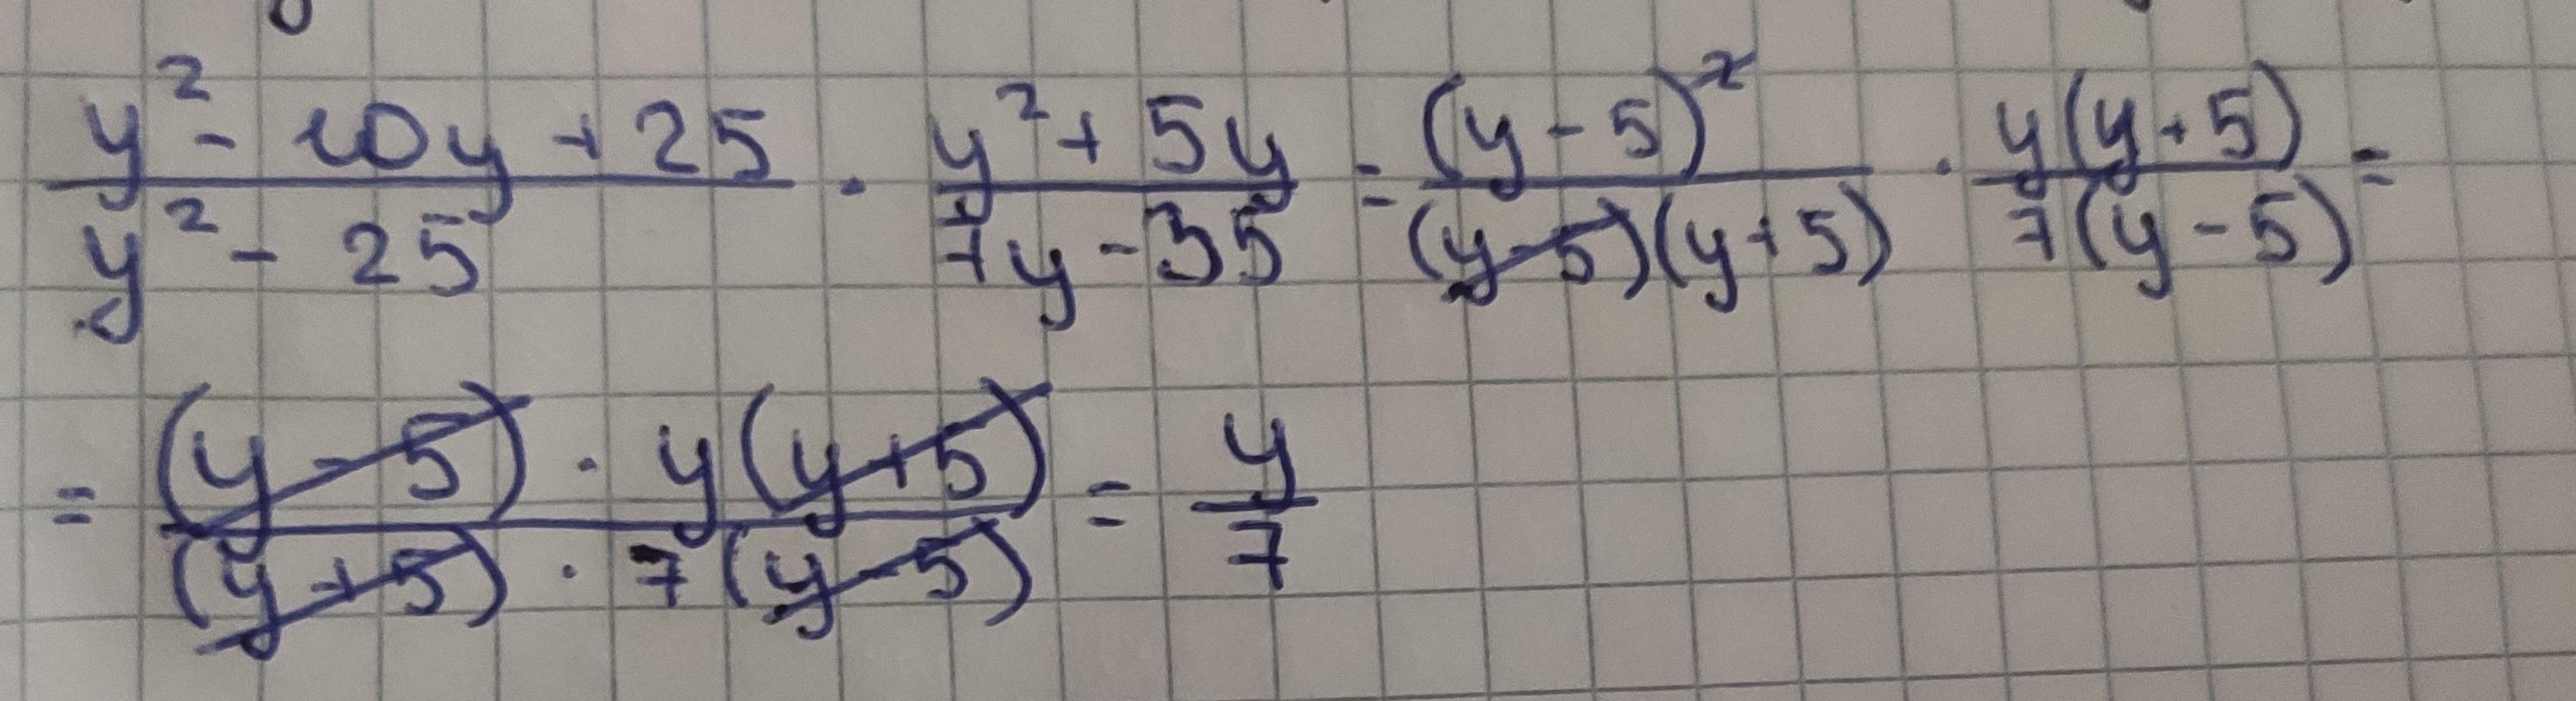 (y² - 10y + 25)/(y² - 25) · (y² + 5y)/(7y - 35) = (y - 5)²/((y - 5)(y + 5)) · y(y + 5)/(7(y - 5)) =
= ((y - 5) · y(y + 5))/((y + 5) · 7(y - 5)) = y/7